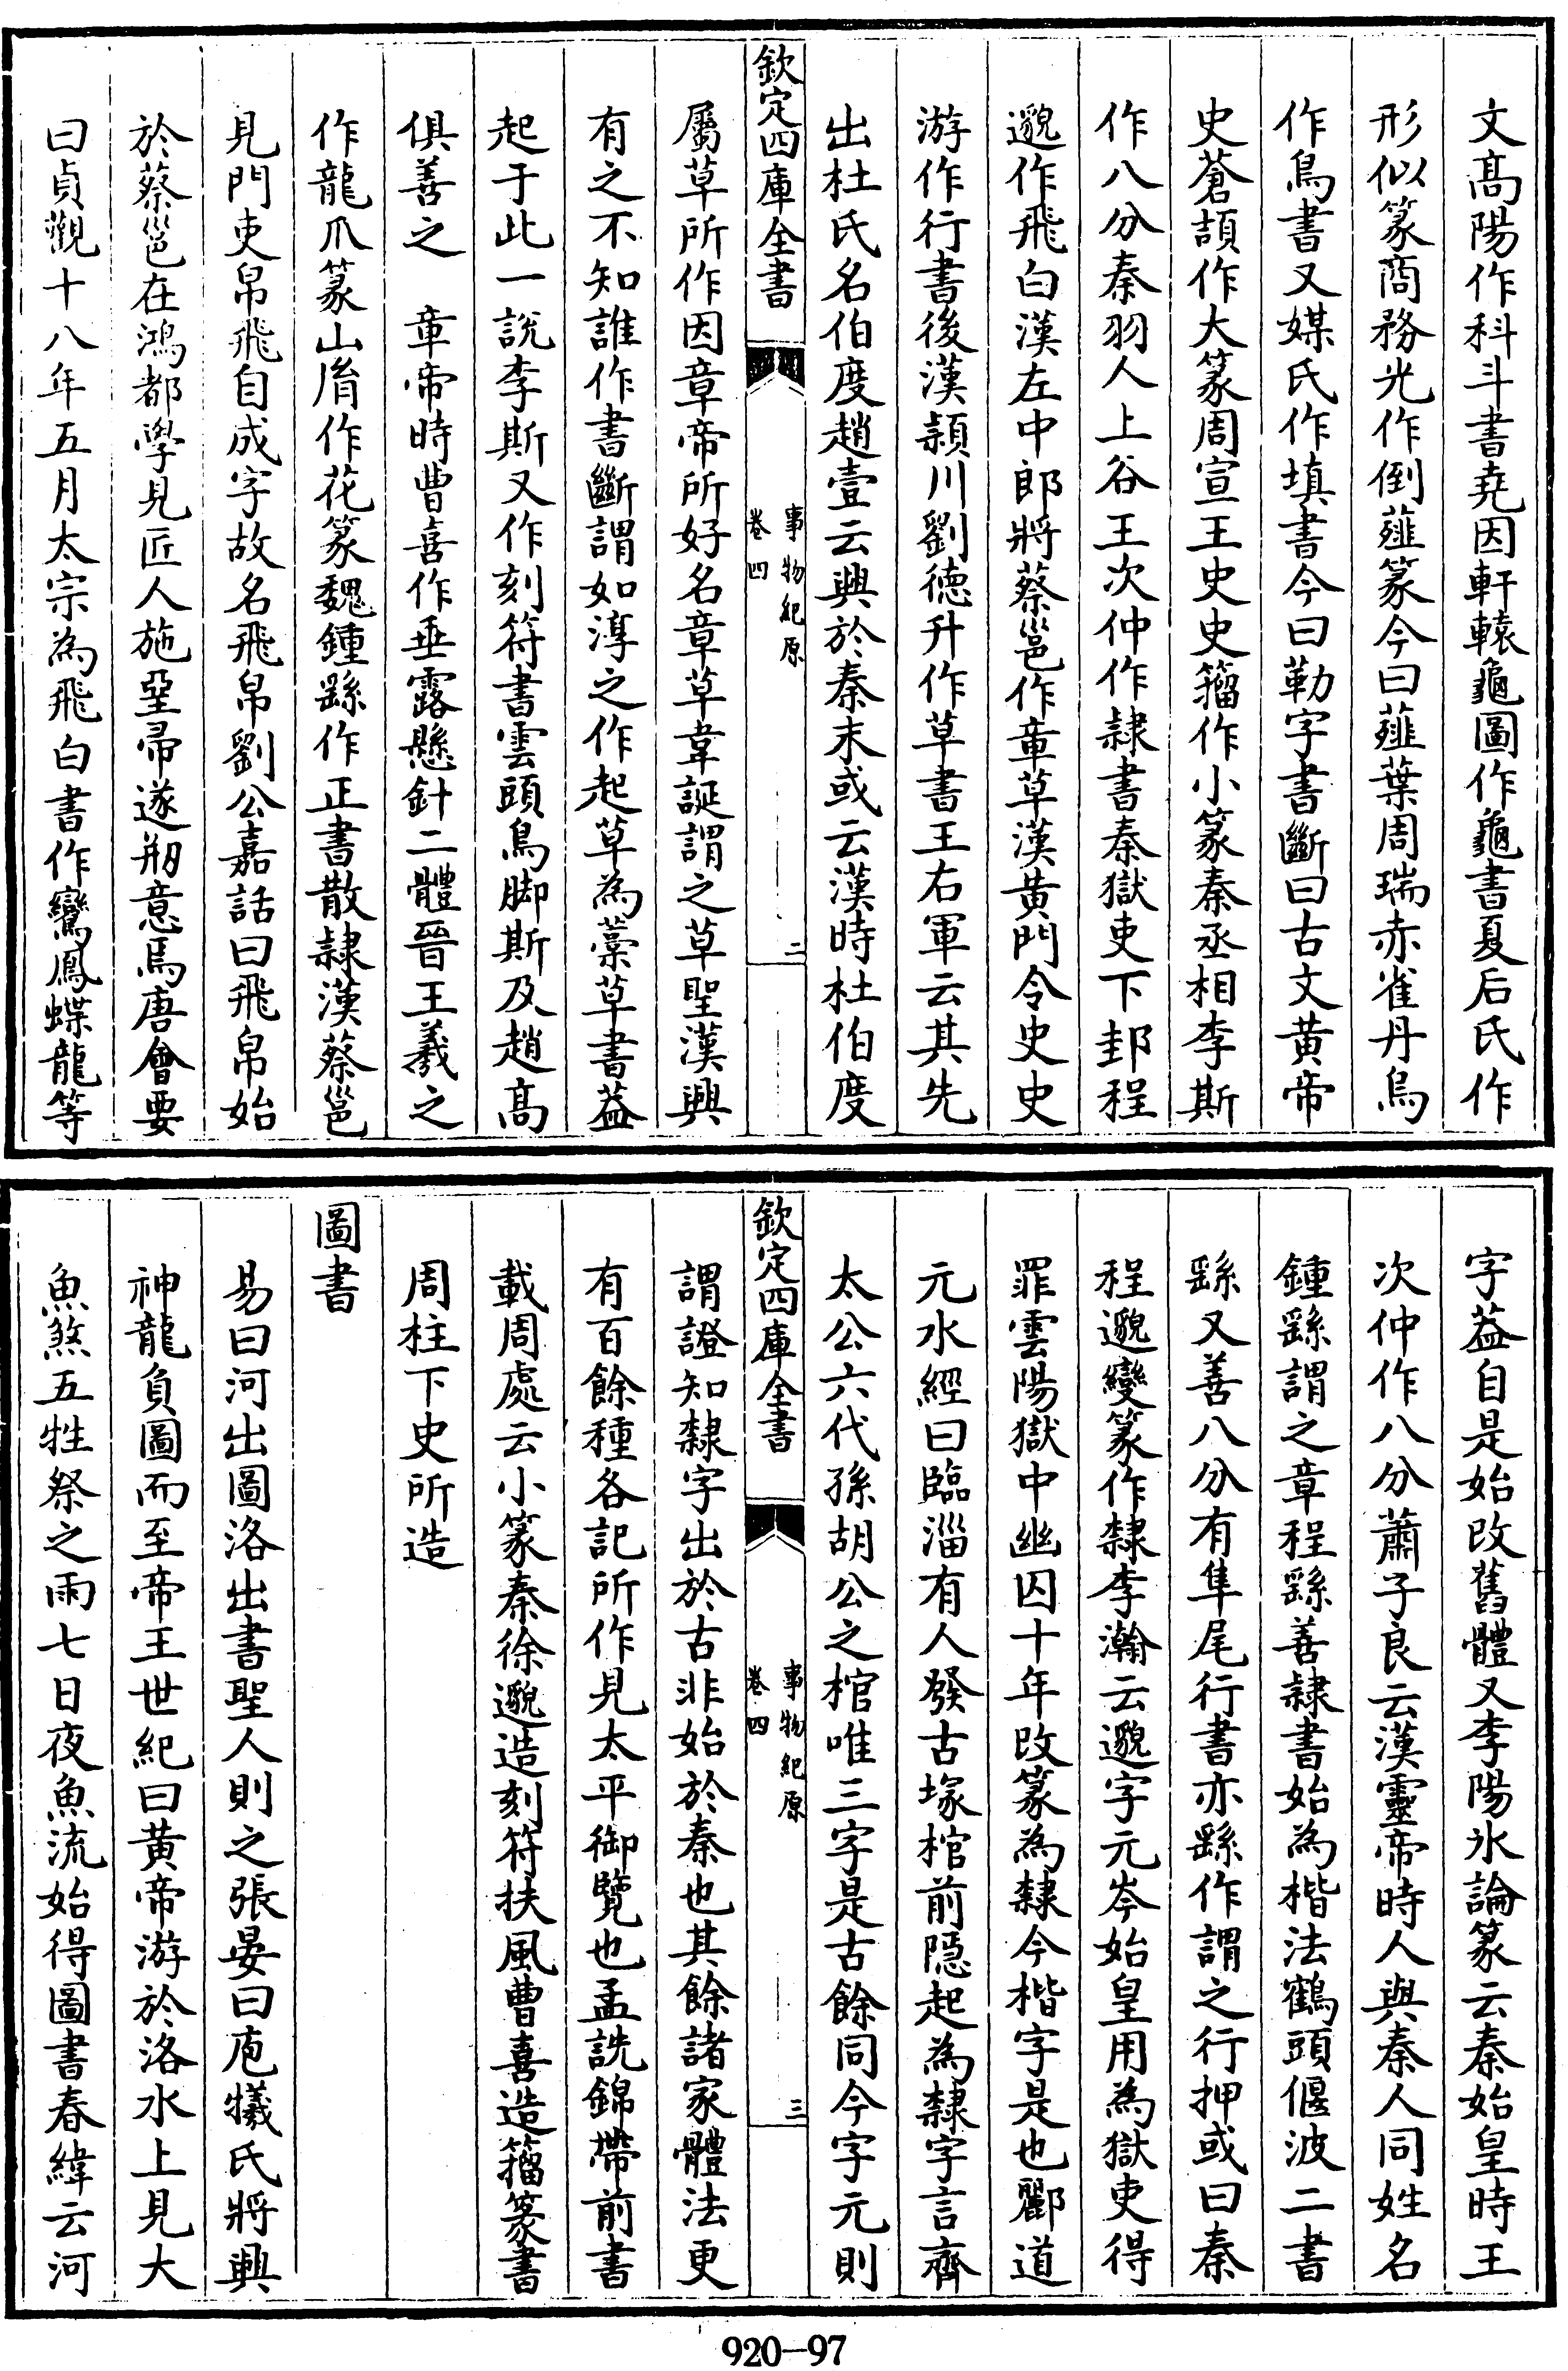 文髙陽作科斗書堯因軒轅龜圖作龜書夏后氏作
形似篆商務光作倒薤篆今曰薤葉周瑞赤雀丹烏
作鳥書又媒氏作填書今曰勒字書斷曰古文黄帝
史蒼頡作大篆周宣王史史籀作小篆秦丞相李斯
作八分秦羽人上谷王次仲作隷書秦獄吏下邽程
邈作飛白漢左中郎將蔡邕作章草漢黄門令史史
游作行書後漢潁川劉徳升作草書王右軍云其先
出杜氏名伯度趙壹云興於秦末或云漢時杜伯度
欽定四庫全書
事物紀原
卷四
二
屬草所作因章帝所好名章草韋誕謂之草聖漢興
有之不知誰作書斷謂如淳之作起草為藁草書葢
起于此一說李斯又作刻符書雲頭鳥脚斯及趙髙
俱善之　章帝時曹喜作垂露懸針二體晉王羲之
作龍爪篆山胤作花篆魏鍾繇作正書散隷漢蔡邕
見門吏帚飛自成字故名飛帛劉公嘉話曰飛帛始
於蔡邕在鴻都學見匠人施堊帚遂剙意焉唐會要
曰貞觀十八年五月太宗為飛白書作鸞鳳蝶龍等
字葢自是始改舊體又李陽氷論篆云秦始皇時王
次仲作八分蕭子良云漢靈帝時人與秦人同姓名
鍾繇謂之章程繇善隷書始為楷法鶴頭偃波二書
繇又善八分有隼尾行書亦繇作謂之行押或曰秦
程邈變篆作隸李瀚云邈字元岑始皇用為獄吏得
罪雲陽獄中幽囚十年改篆為隸今楷字是也酈道
元水經曰臨淄有人發古塚棺前隠起為隸字言齊
太公六代孫胡公之棺唯三字是古餘同今字元則
欽定四庫全書
事物紀原
卷四
三
謂證知隸字出於古非始於秦也其餘諸家體法更
有百餘種各記所作見太平御覽也孟詵錦帶前書
載周處云小篆秦徐邈造刻符扶風曹喜造籀篆書
周柱下史所造
圖書
易曰河出圖洛出書聖人則之張晏曰庖犧氏將興
神龍負圖而至帝王世紀曰黄帝游於洛水上見大
魚煞五牲祭之雨七日夜魚流始得圖書春緯云河
920-97